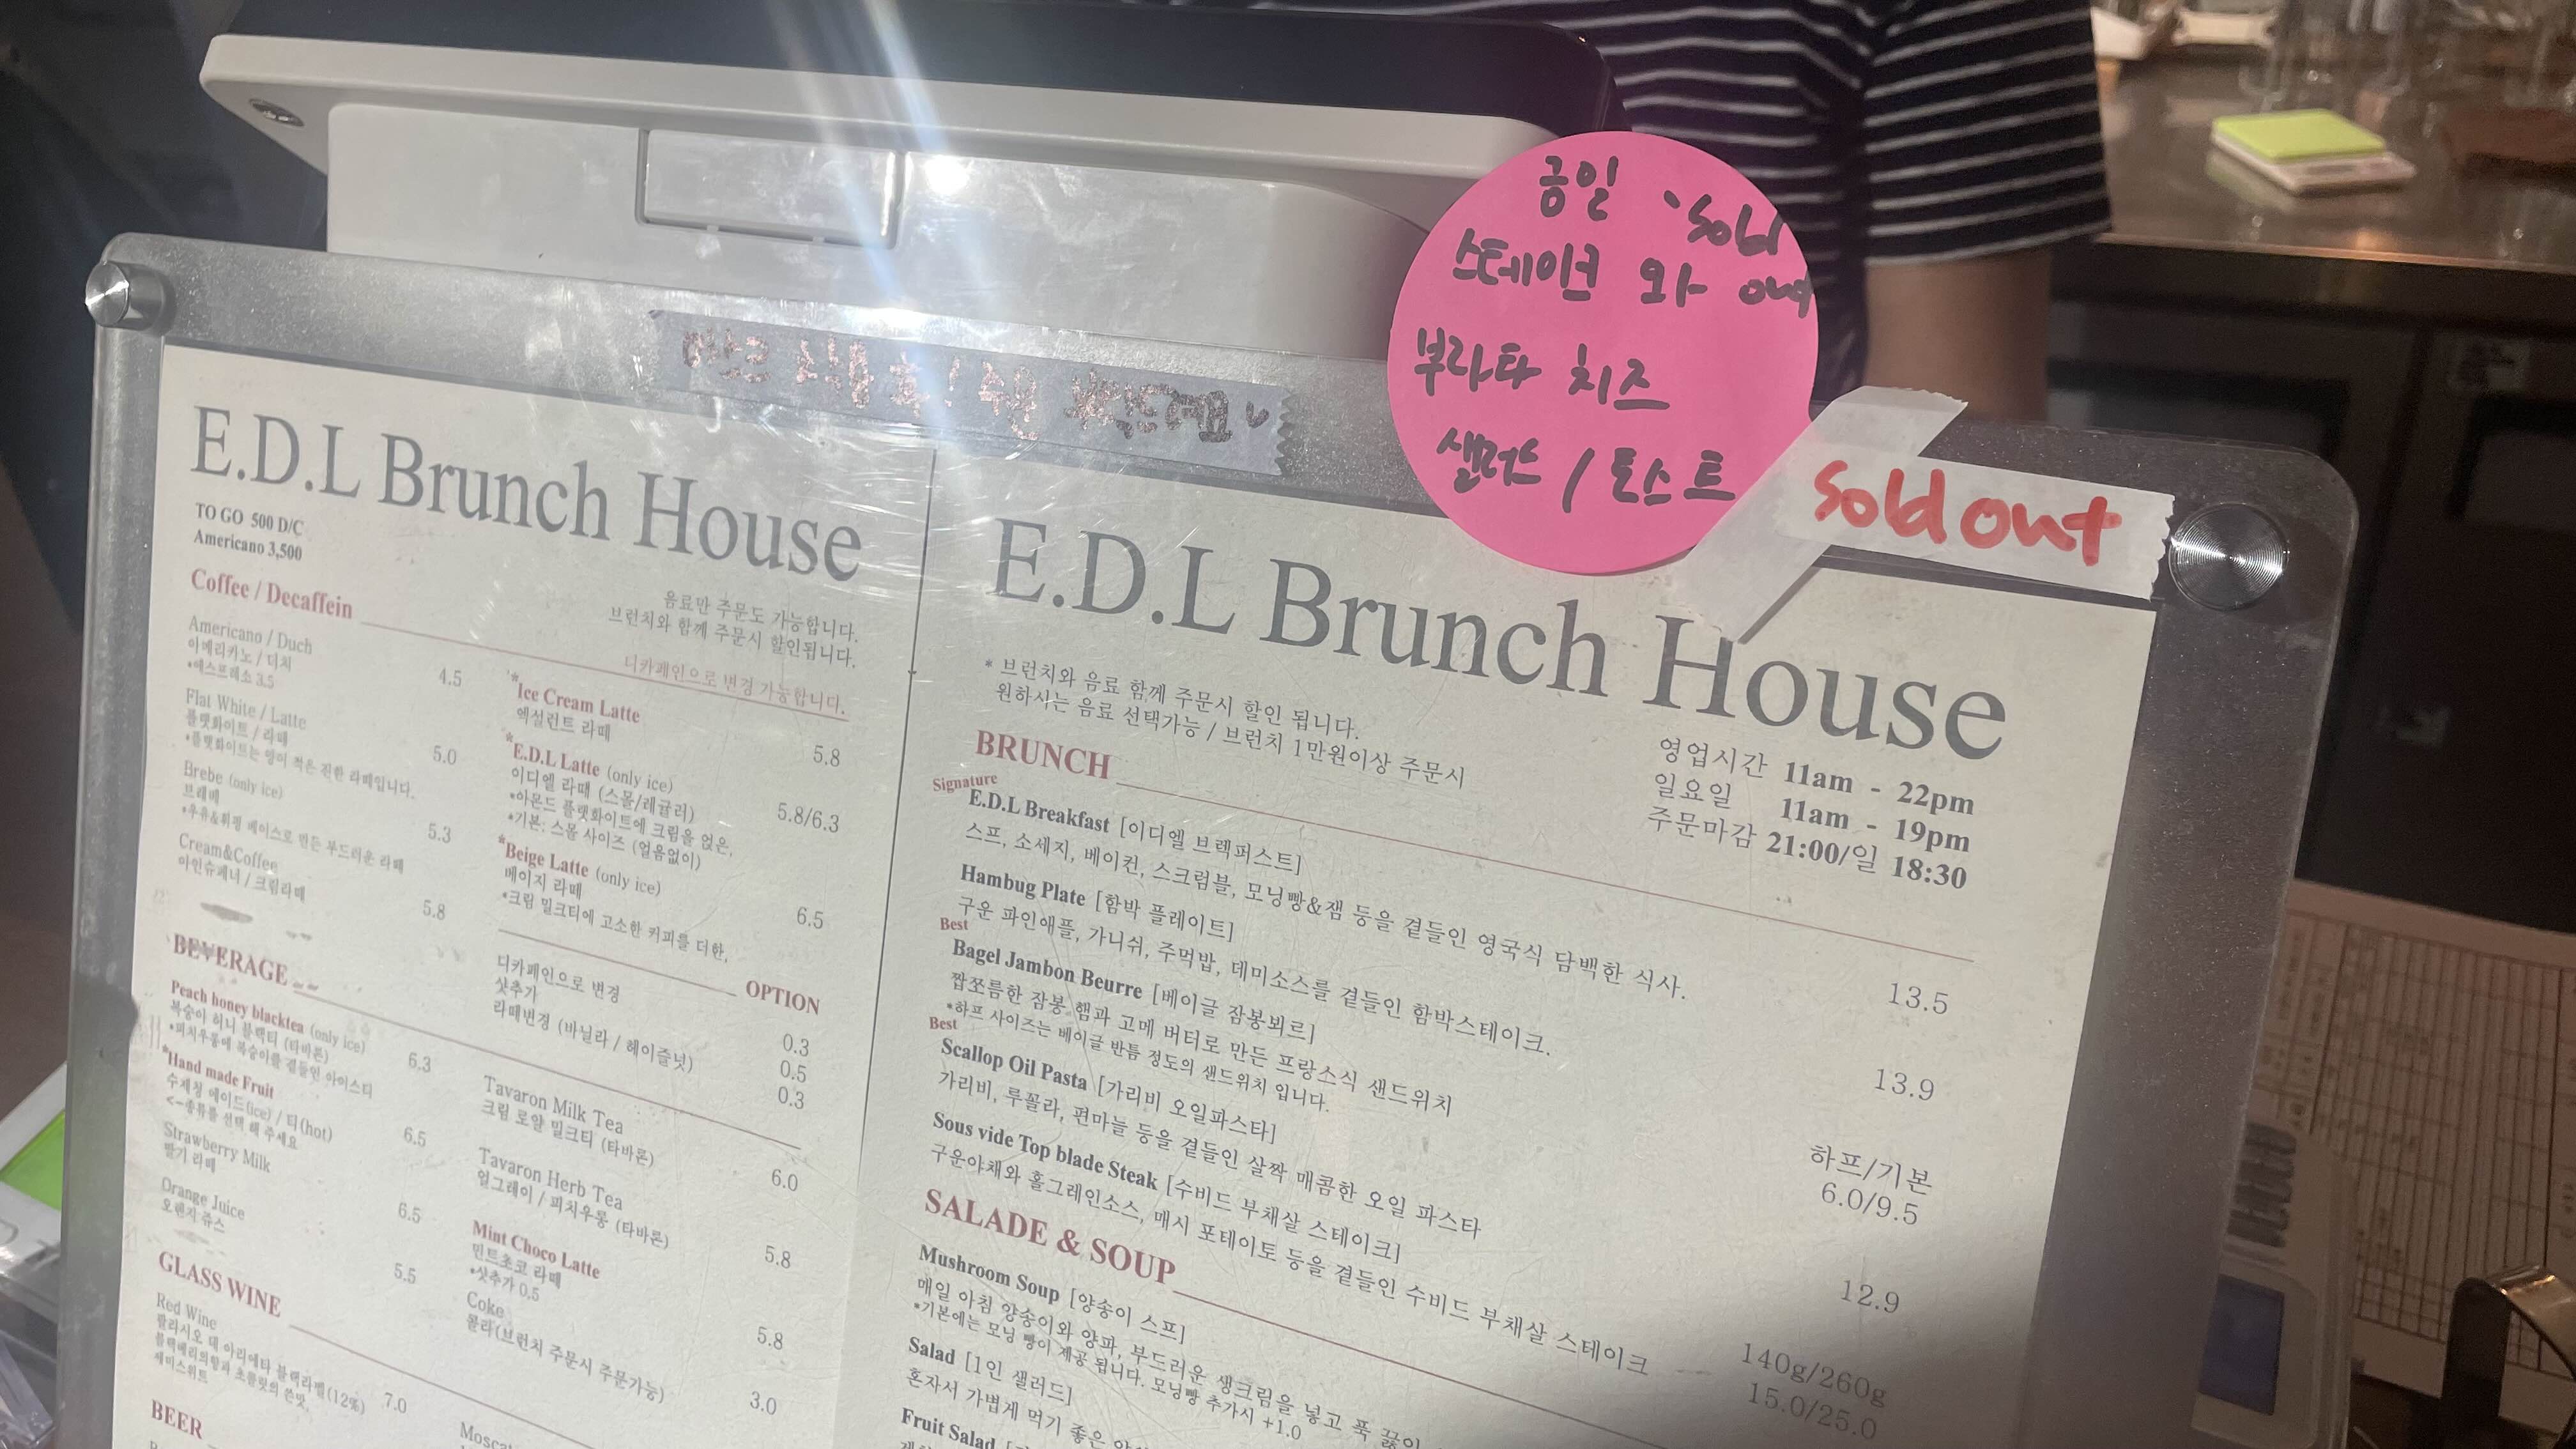 금일 sold
스테이크 와 out
부라타 치즈
샐러드 / 토스트
sold out
마스크 착용 후! 주문 부탁드려요
E.D.L Brunch House
TO GO 500 D/C
Americano 3,500
음료만 주문도 가능합니다.
브런치와 함께 주문시 할인됩니다.
Coffee / Decaffein
디카페인으로 변경 가능합니다.
Americano / Duch
아메리카노 / 더치
*에스프레소 3.5
4.5
Flat White / Latte
플랫화이트 / 라떼
*플랫화이트는 양이 적은 진한 라떼입니다.
5.0
Brebe (only ice)
브레베
*우유&휘핑 베이스로 만든 부드러운 라떼
5.3
Cream&Coffee
아인슈페너 / 크림라떼
5.8
*Ice Cream Latte
엑설런트 라떼
5.8
*E.D.L Latte (only ice)
이디엘 라떼 (스몰/레귤러)
*아몬드 플랫화이트에 크림을 얹은,
*기본: 스몰 사이즈 (얼음없이)
5.8/6.3
*Beige Latte (only ice)
베이지 라떼
*크림 밀크티에 고소한 커피를 더한,
6.5
OPTION
디카페인으로 변경
0.3
샷추가
0.5
라떼변경 (바닐라 / 헤이즐넛)
0.3
BEVERAGE
Peach honey blacktea (only ice)
복숭아 허니 블랙티 (타바론)
*피치우롱에 복숭아를 곁들인 아이스티
6.3
*Hand made Fruit
수제청 에이드(ice) / 티(hot)
<-종류를 선택 해 주세요
6.5
Strawberry Milk
딸기 라떼
6.5
Orange Juice
오렌지 쥬스
5.5
Tavaron Milk Tea
크림 로얄 밀크티 (타바론)
6.0
Tavaron Herb Tea
얼그레이 / 피치우롱 (타바론)
5.8
Mint Choco Latte
민트초코 라떼
*샷추가 0.5
5.8
Coke
콜라(브런치 주문시 주문가능)
3.0
GLASS WINE
Red Wine
팔라시오 데 아리에타 블랙라벨(12%)
블랙베리의향과 초콜릿의 쓴맛,
세미스위트
7.0
BEER
E.D.L Brunch House
* 브런치와 음료 함께 주문시 할인 됩니다.
원하시는 음료 선택가능 / 브런치 1만원이상 주문시
영업시간 11am - 22pm
일요일 11am - 19pm
주문마감 21:00/일 18:30
BRUNCH
Signature
E.D.L Breakfast [이디엘 브렉퍼스트]
스프, 소세지, 베이컨, 스크럼블, 모닝빵&잼 등을 곁들인 영국식 담백한 식사.
13.5
Hambug Plate [함박 플레이트]
구운 파인애플, 가니쉬, 주먹밥, 데미소스를 곁들인 함박스테이크.
13.9
Best
Bagel Jambon Beurre [베이글 잠봉뵈르]
짭쪼름한 잠봉 햄과 고메 버터로 만든 프랑스식 샌드위치
*하프 사이즈는 베이글 반틈 정도의 샌드위치 입니다.
하프/기본
6.0/9.5
Best
Scallop Oil Pasta [가리비 오일파스타]
가리비, 루꼴라, 편마늘 등을 곁들인 살짝 매콤한 오일 파스타
12.9
Sous vide Top blade Steak [수비드 부채살 스테이크]
구운야채와 홀그레인소스, 매시 포테이토 등을 곁들인 수비드 부채살 스테이크
140g/260g
15.0/25.0
SALADE & SOUP
Mushroom Soup [양송이 스프]
매일 아침 양송이와 양파, 부드러운 생크림을 넣고 푹 끓인
*기본에는 모닝 빵이 제공 됩니다. 모닝빵 추가시 +1.0
Salad [1인 샐러드]
혼자서 가볍게 먹기 좋은
Fruit Salad